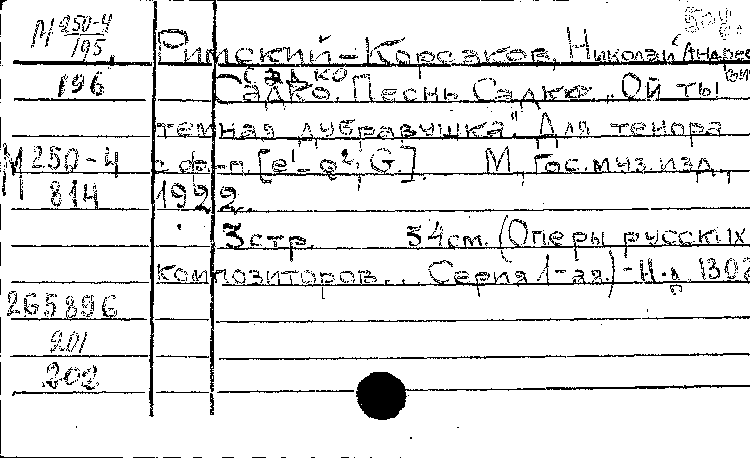 М 250-4/195
Римский-Корсаков, Николай Андрееви
196
Садко
Садко. Песнь Садко „Ой ты
темная дубравушка". Для тенора
М 250-4/814
с ф-п. [e¹-g², G.]. М., Гос. муз. изд.,
1922.
3 стр. 54 см. (Оперы русских
композиторов.. Серия 1-ая) - Н.д. 1302
265896
901
202